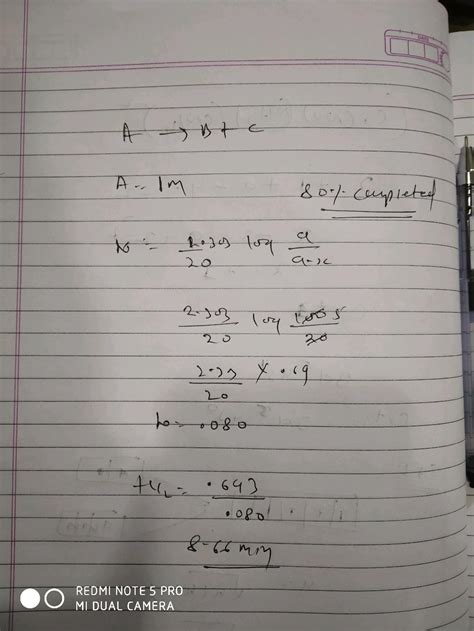 A → B + C
A = 1M
80% Completed
k = 2.303/20 log a/a-x
2.303/20 log 100 5/20
2.303/20 × .69
k = .080
t1/2 = .693/.080
8.66 min
REDMI NOTE 5 PRO
MI DUAL CAMERA